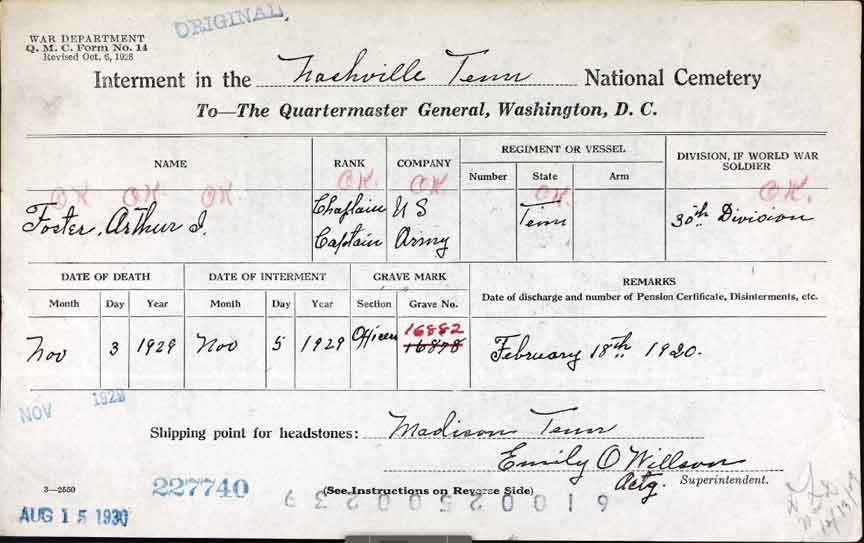 ORIGINAL
WAR DEPARTMENT
Q. M. C. Form No. 14
Revised Oct. 6, 1928
Interment in the Nashville Tenn National Cemetery
To—The Quartermaster General, Washington, D. C.
NAME RANK COMPANY REGIMENT OR VESSEL DIVISION, IF WORLD WAR SOLDIER
Number State Arm
OK OK. OK OK. OK OK. OK.
Foster, Arthur J. Chaplain U S Tenn 30th Division
Captain Army
DATE OF DEATH DATE OF INTERMENT GRAVE MARK REMARKS
Month Day Year Month Day Year Section Grave No. Date of discharge and number of Pension Certificate, Disinterments, etc.
16882
Nov 3 1929 Nov 5 1929 Officers 16878 February 18th 1920.
NOV 1929
Shipping point for headstones: Madison Tenn
Emily O Willson
Actg. Superintendent.
3—2550 227740 (See Instructions on Reverse Side)
AUG 15 1930